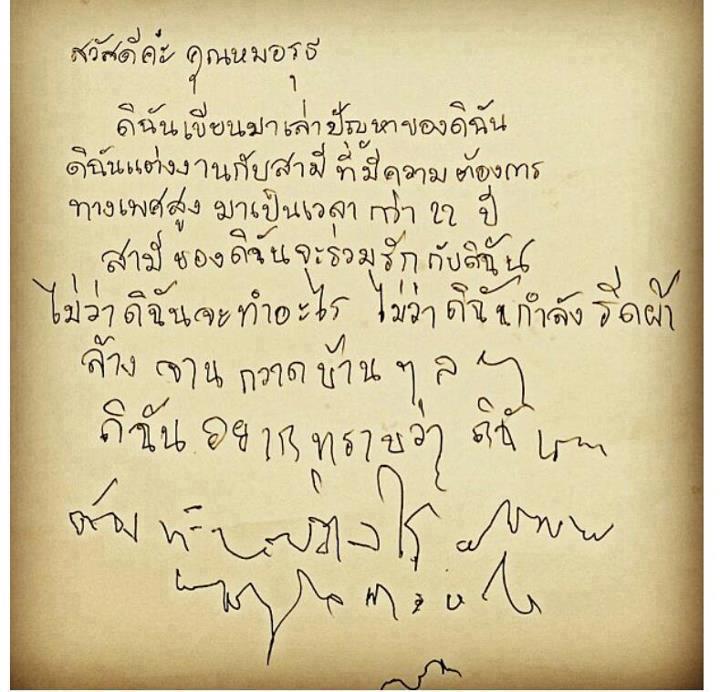 สวัสดีค่ะ คุณหมอรุธ
ดิฉันเขียนมาเล่าปัญหาของดิฉัน
ดิฉันแต่งงานกับสามี ที่มีความต้องการ
ทางเพศสูง มาเป็นเวลา กว่า 22 ปี
สามีของดิฉันจะร่วมรักกับดิฉัน
ไม่ว่าดิฉันจะทำอะไร ไม่ว่าดิฉันกำลังรีดผ้า
ล้างจาน กวาดบ้าน ฯลฯ
ดิฉันอยากทราบว่า ดิฉัน
ต้องทำอย่างไร